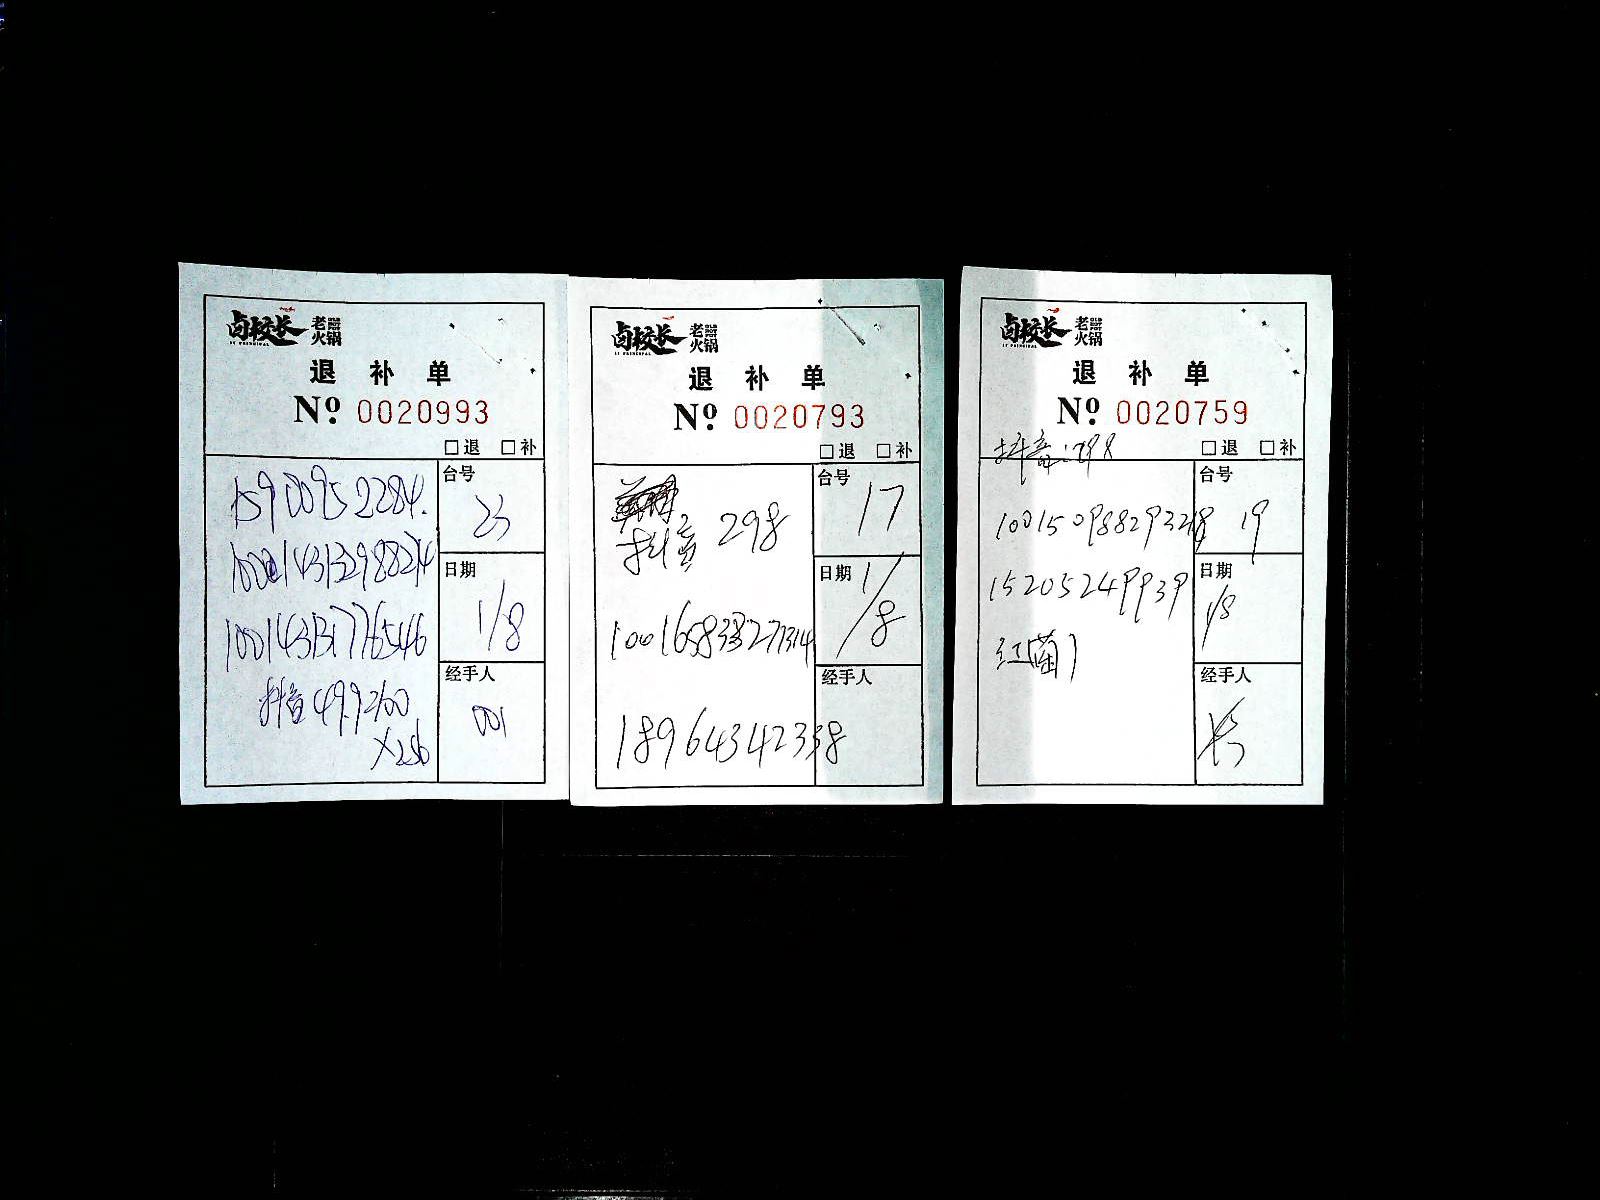 卤校长 老火锅
LU PRINCIPAL
OLD HOT POT
退 补 单
Nº 0020993
□退 □补
15900952284.
台号
23
100143132988274
日期
1/8
1001431317765546
抖音 49.92/00
X256
经手人
001
卤校长 老火锅
LU PRINCIPAL
OLD HOT POT
退 补 单
Nº 0020793
□退 □补
抖音 298
台号
17
1001658338277314
日期
1/8
18964342338
经手人
卤校长 老火锅
LU PRINCIPAL
OLD HOT POT
退 补 单
Nº 0020759
□退 □补
抖音:298
台号
19
1001509882932818
15205249939
日期
1/8
红菌1
经手人